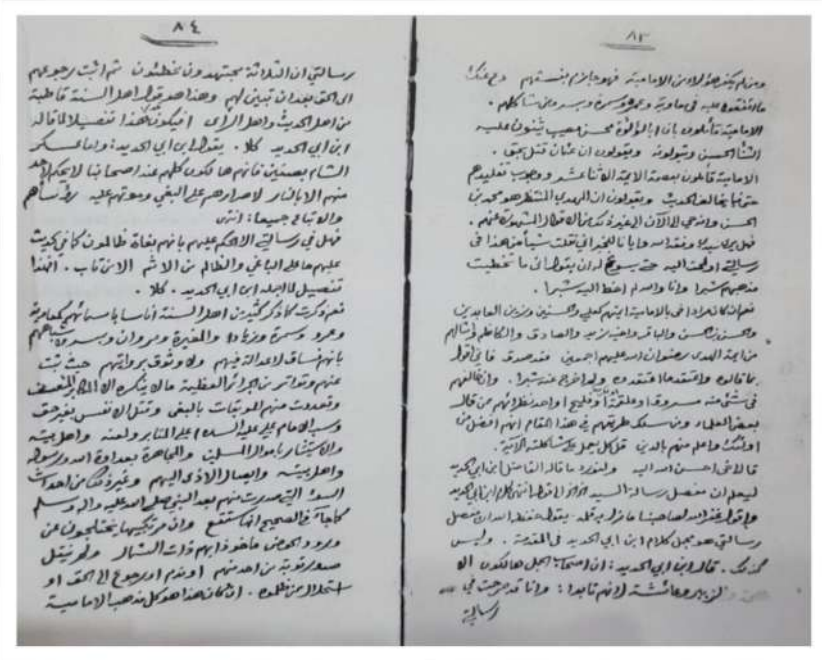 ٨٣
ومن لم يكفر هؤلاء من الامامية فهو جازم بفسقهم ودع عنك
ما اتفقوا عليه في معاوية وعمرو وسمرة وبسر ومن شاكلهم .
الامامية قائلون بان ابا لؤلؤة محسن مصيب يثنون عليه
الثناء الحسن ويتولونه ويقولون ان عثمان قتل بحق .
الامامية قائلون بعصمة الائمة الاثنا عشر ووجوب تقليدهم
حتى فيما يخالف الحديث ويقولون ان المهدي المنتظر هو محمد بن
الحسن وانه حي الى الآن الى غير ذلك من الاقوال المشهورة عنهم .
فهل يرى سيدي وفقه الله وايانا للخير اني نقلت شيأ من هذا في
رسالتي او ملت اليه حتى يسوغ له ان يقول اني ما تخطيت
مذهبهم شبرا وانا والله لم اخط اليه شبرا .
نعم ان كان مراد اخي بالامامية ائمتهم كعلي والحسنين وزين العابدين
والحسن بن الحسن والباقر واخيه زيد والصادق والكاظم وامثالهم
من ائمة الهدى رضوان الله عليهم اجمعين فقد صدق فاني اقول
بما قالوه واعتقد ما اعتقدوه ولم اخرج عنه شبرا . وان خالفهم
في شيء منه مسروق او علقمة او فليح او احد نظرائهم من قال
بعض العلماء ومن سلك طريقهم في هذا المقام انهم افضل من
اولئك واعلم منهم بالدين قل كل يعمل على شاكلته الآية .
قال اخي احسن الله اليه ولنورد ما قاله الفاضل ابن ابي الحديد
ليعلم ان مفصل رسالة السيد
واقول غفر الله لصاحبنا ما نزل به قلمه يقول حفظه الله ان مفصل
رسالتي هو مجمل كلام ابن ابي الحديد في المقدمة . وليس
كذلك . قال ابن ابي الحديد : ان اصحاب الجمل هالكون الا
الزبير وعائشة لانهم تابوا : وانا قد صرحت في
رسالتي
٨٤
رسالتي ان الثلاثة مجتهدون مخطئون ثم اثبت رجوعهم
الى الحق بعد ان تبين لهم وهذا هو قول اهل السنة قاطبة
من اهل الحديث واهل الراى افيكون هذا تفصيلا لما قاله
ابن ابي الحديد كلا . يقول ابن ابي الحديد : واما عسكر
الشام بصفين فانهم هالكون كلهم عند اصحابنا لا يحكم لاحد
منهم الا بالنار لاصرارهم على البغي وموتهم عليه رؤسأهم
والاتباع جميعا : انتهى
فهل في رسالتي الا الحكم عليهم بانهم بغاة ظالمون كما في الحديث
عليهم ما على الباغي والظالم من الاثم الا من تاب . افهذا
تفصيل لما اجمله ابن ابي الحديد . كلا .
نعم ذكرت كما ذكر كثير من اهل السنة اناسا باسمائهم كمعاوية
وعمرو وسمرة وزياد والمغيرة ومروان وبسر واشباههم
بانهم فساق لا عدالة فيهم ولا وثوق بروايتهم حيث ثبت
عنهم وتواتر من الجرائر العظيمة ما لا ينكره الا المكابر المتعسف
وتعددت منهم الموبقات بالبغي وقتل الانفس بغير حق
وسب الامام علي عليه السلام على المنابر ولعنه واهل بيته
والاستيثار باموال المسلمين والمجاهرة بعداوة الله ورسوله
واهل بيته وايصال الاذى اليهم وغير ذلك من احداث
السوء التي صدرت منهم بعد النبي صلى الله عليه واله وسلم
كما جاء في الصحيح انها ستقع وان مرتكبيها يختلجون عن
ورود الحوض مأخوذا بهم ذات الشمال ولم ينقل
صدور توبة من احد منهم او ندم او رجوع الى الحق او
استحلال ممن ظلموه . ان كان هذا هو كل مذهب الامامية